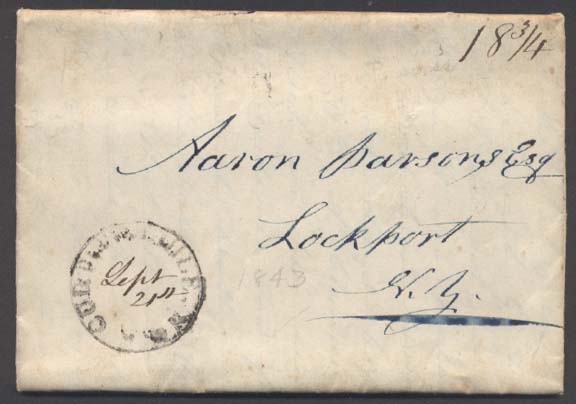 18 3/4
Aaron Parsons Esq
Lockport
N.Y.
1843
Sept
21st